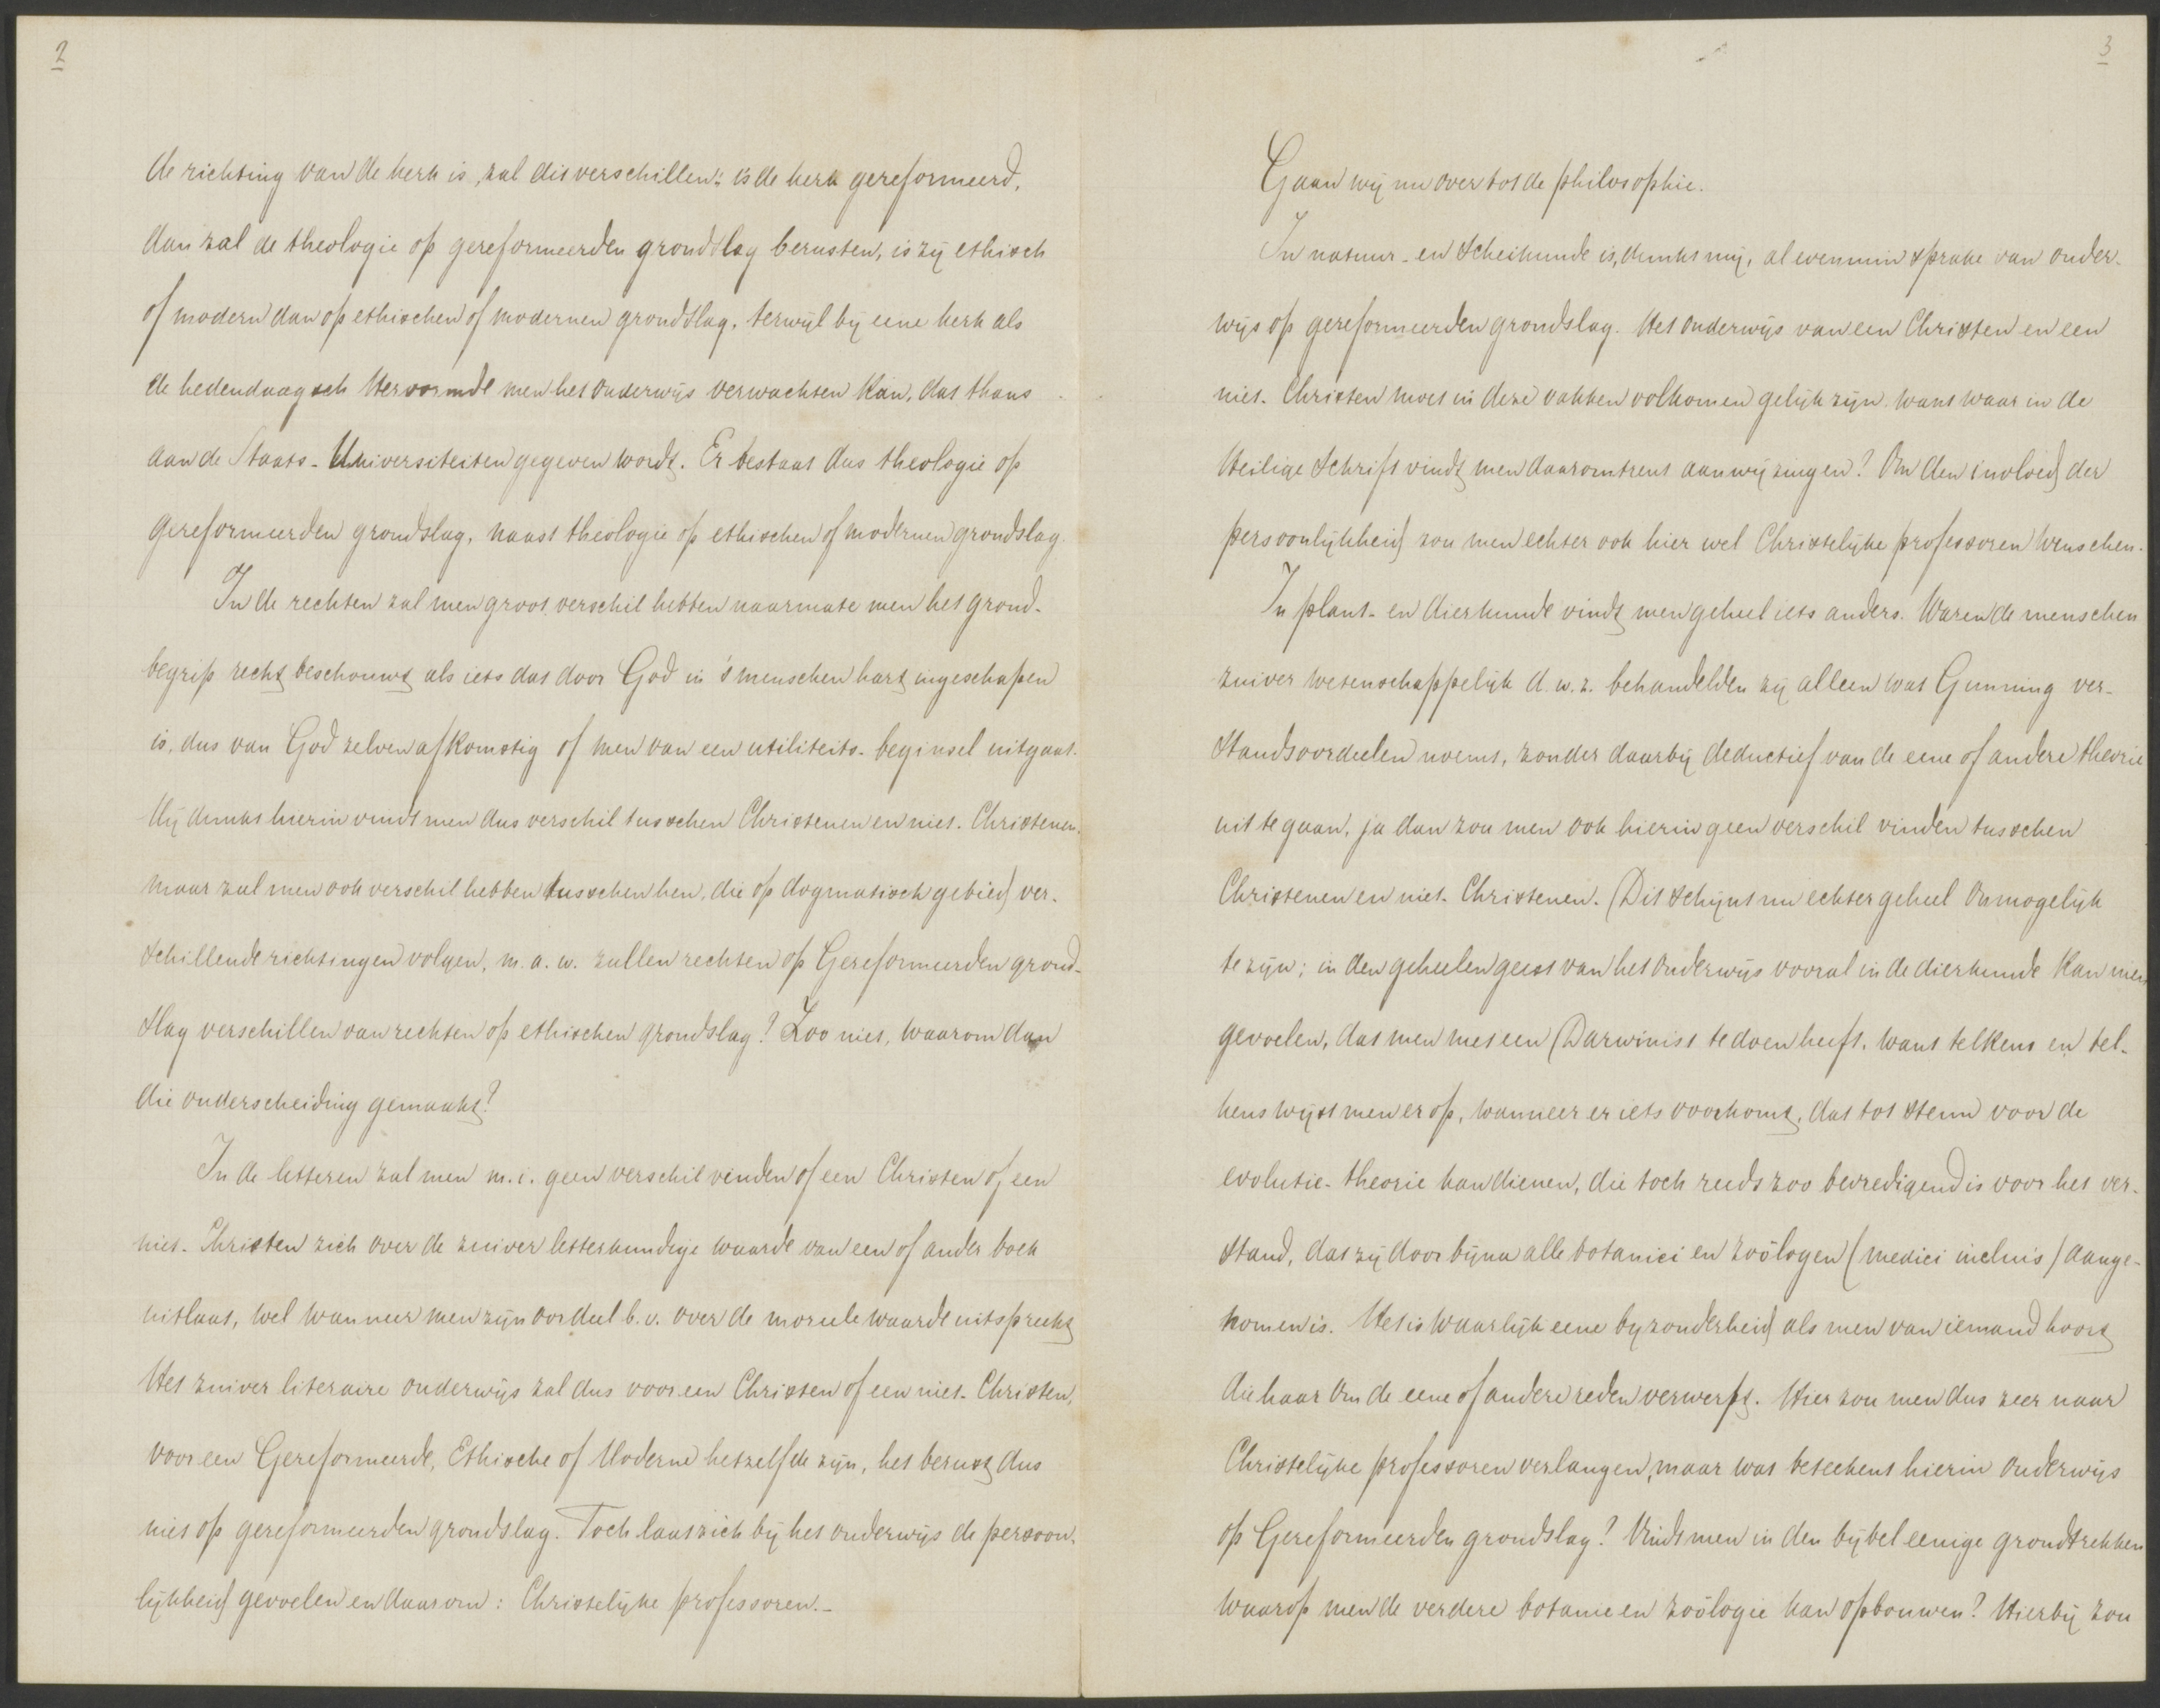 2
de richting van de kerk is, zal dis verschillen: is de kerk gereformeerd,
dan zal de theologie op gereformeerden grondslag berusten, is zij ethisch
of modern dan op ethischen of modernen grondslag, terwijl bij eene kerk als
de hedendaagsch Hervormde men het onderwijs verwachten kan, dat thans
aan de Staats-Universiteiten gegeven wordt. Er bestaat dus theologie op
gereformeerden grondslag, naast theologie op ethischen of modernen grondslag.
In de rechten zal men groot verschil hebben naarmate men het grond-
begrip recht beschouwt als iets dat door God in 's menschen hart ingeschapen
is, dus van God zelven afkomstig of men van een utiliteits-beginsel uitgaat.
Mij dunkt hierin vindt men dus verschil tusschen Christenen en niet-Christenen,
maar zal men ook verschil hebben tusschen hen, die op dogmatisch gebied ver-
schillende richtingen volgen, m.a.w. zullen rechten op Gereformeerden grond-
slag verschillen van rechten op ethischen grondslag? Zoo niet, waarom dan
die onderscheiding gemaakt?
In de letteren zal men m.i. geen verschil vinden of een Christen of een
niet-Christen zich over de zuiver letterkundige waarde van een of ander boek
uitlaat, wel wanneer men zijn oordeel b.v. over de moreele waarde uitspreekt
Het zuiver literaire onderwijs zal dus voor een Christen of een niet-Christen,
voor een Gereformeerde, Ethische of Moderne hetzelfde zijn, het berust dus
niet op gereformeerden grondslag. Toch laat zich bij het onderwijs de persoon-
lijkheid gevoelen en daarom: Christelijke professoren.-
3
Gaan wij nu over tot de philosophie.
In natuur- en Scheikunde is, dunkt mij, al evenmin sprake van onder-
wijs op gereformeerden grondslag. Het onderwijs van een Christen en een
niet-Christen moet in deze vakken volkomen gelijk zijn. want waar in de
Heilige Schrift vindt men daaromtrent aanwijzingen? Om den invloed der
persoonlijkheid zou men echter ook hier wel Christelijke professoren wenschen.
In plant- en dierkunde vindt men geheel iets anders. Waren de menschen
zuiver wetenschappelijk d.w.z. behandelden zij alleen wat Gunning ver-
standsoordeelen noemt, zonder daarbij deductief van de eene of andere theorie
uit te gaan, ja dan zou men ook hierin geen verschil vinden tusschen
Christenen en niet-Christenen. Dit schijnt nu echter geheel onmogelijk
te zijn; in den geheelen geest van het onderwijs vooral in de dierkunde kan men
gevoelen, dat men met een Darwinist te doen heeft. want telkens en tel-
kens wijst men er op, wanneer er iets voorkomt, dat tot steun voor de
evolutie-theorie kan dienen, die toch reeds zoo bevredigend is voor het ver-
stand, dat zij door bijna alle botanici en zoölogen (medici incluis) aange-
nomen is. Het is waarlijk eene byzonderheid als men van iemand hoort
die haar om de eene of andere reden verwerpt. Hier zou men dus zeer naar
Christelijke professoren verlangen, maar wat beteekent hierin onderwijs
op Gereformeerden grondslag? Vindt men in den bijbel eenige grondtrekken
waarop men de verdere botanie en zoölogie kan opbouwen? Hierbij zou